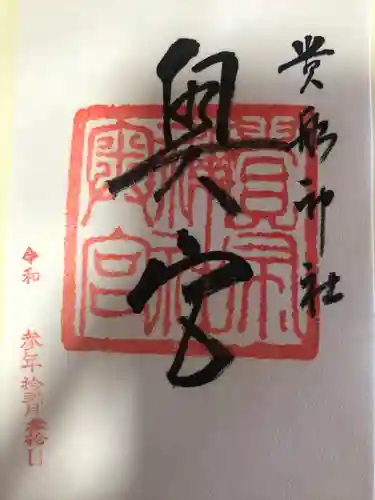 貴船神社
奥宮
貴船神社奥宮
令和
参年拾弐月参拾日